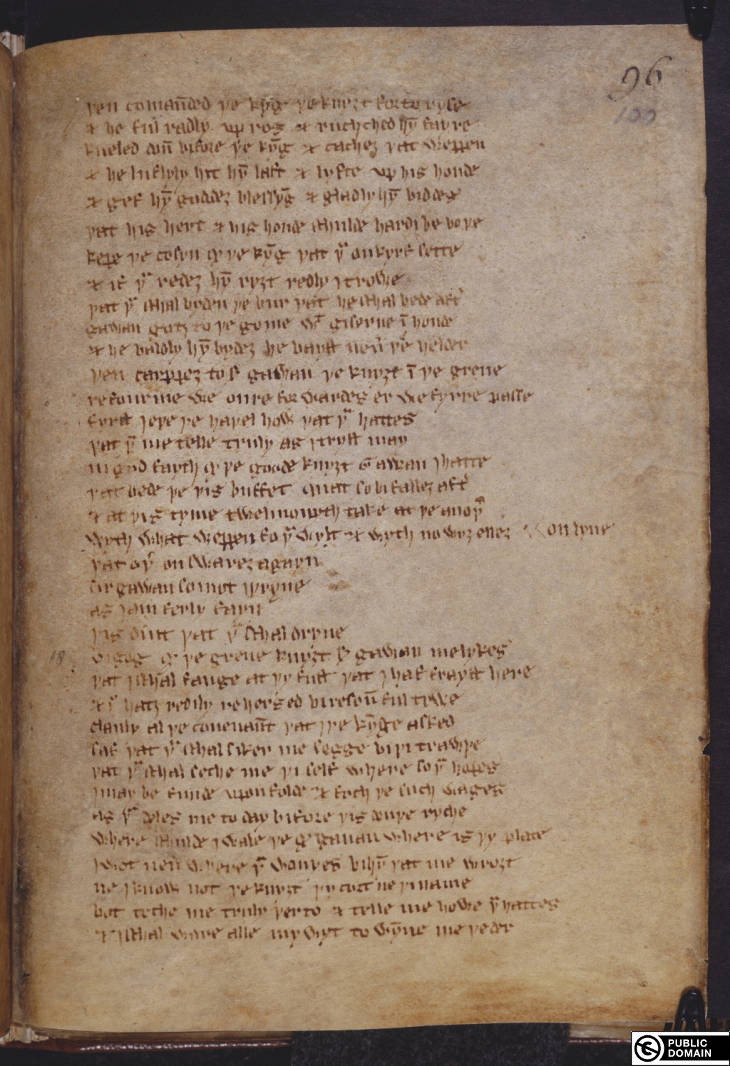 96
100
þen comaūded þe kȳg þe knyȝt for to ryse
& he ful radly vp ros & ruchched hȳ fayre
kneled doū bifore þe kȳg & cachez þat weppen
& he luflyly hit hȳ laft & lyfte vp his honde
& gef hȳ goddez blessȳg & gladly hȳ biddes
þat his hert & his honde schulde hardi be boþe
kepe þe cosyn qͦ þe kȳg þat þͧ on kyrf sette
& if þͧ redez hȳ ryȝt redly I trowe
þat þͧ schal byden þe bur þat he schal bede aft̉
gawan gotz to þe gome wͭ giserne ī honde
& he baldly hȳ bydez he bayst neủ þe helder
þen carppez to sͬ gawan þe knyȝt ī þe grene
refourme we oure forwardes er we fyrre passe
fyrst I eþe þe haþel how þat þͧ hattes
þat þͧ me telle truly as I tryst may
in god fayth qͦ þe goode knyȝt Gawan I hatte
þat bede þe þis buffet quat so bifallez aft̉
& at þis tyme twelmonyth take at þe anoþ̉
wyth what weppen so þͧ wylt & wyth no wyȝ ellez on lyue
þat oþ̉ onswarez agayn
sir gawan so mot I þryue
as I am ferly fayn
þis dint þat þͧ schal dryue
bigog qͦ þe grene knyȝt sͬ gawan me lykes
þat I schal fange at þy fust þat I haf frayst here
& þͧ hatz redily rehersed bi resoū ful trwe
clanly al þe couenaūt þat I þe kȳge asked
saf þat þͧ schal siker me segge bi þi trawþe
þat þͧ schal seche me þi self where so þͧ hopes
I may be funde vpon folde & foch þe such wages
as þͧ deles me to day bifore þis douþe ryche
where schulde I wale þe qͦ gauan where is þy place
I wot neủ where þͧ wonyes bi hȳ þat me wroȝt
ne I know not þe knyȝt þy cort ne þi name
bot teche me truly þerto & telle me howe þͧ hattes
& I schal ware alle my wyt to wȳne me þeder
PUBLIC
DOMAIN